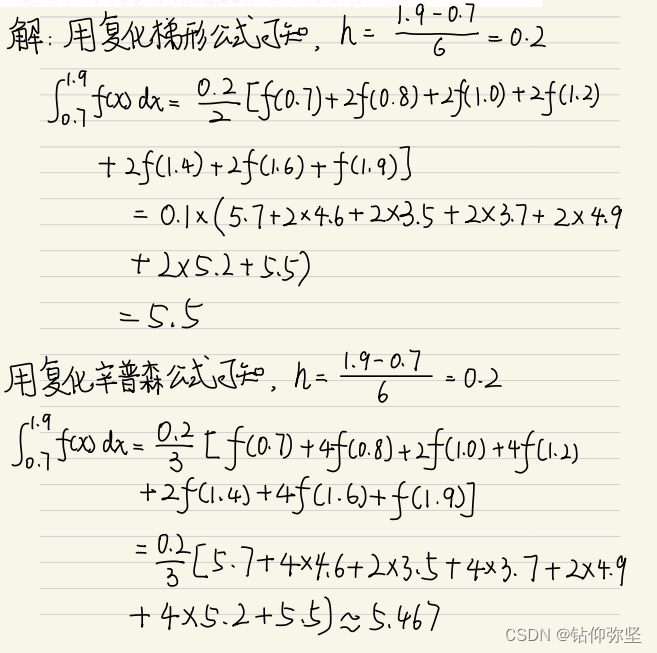 解：用复化梯形公式可知，h = \frac{1.9-0.7}{6} = 0.2
\int_{0.7}^{1.9} f(x) dx = \frac{0.2}{2} [f(0.7)+2f(0.8)+2f(1.0)+2f(1.2)
+ 2f(1.4)+2f(1.6)+f(1.9)]
= 0.1×(5.7+2×4.6+2×3.5+2×3.7+2×4.9
+ 2×5.2+5.5)
= 5.5
用复化辛普森公式可知，h = \frac{1.9-0.7}{6} = 0.2
\int_{0.7}^{1.9} f(x) dx = \frac{0.2}{3} [f(0.7)+4f(0.8)+2f(1.0)+4f(1.2)
+2f(1.4)+4f(1.6)+f(1.9)]
= \frac{0.2}{3} [5.7+4×4.6+2×3.5+4×3.7+2×4.9
+ 4×5.2+5.5] ≈ 5.467
CSDN @钻仰弥坚